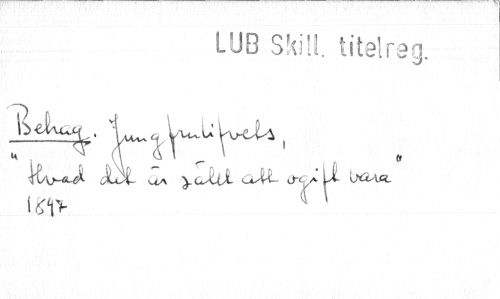 LUB Skill. titelreg.
Behag. Jungfrulifvets,
"Hvad det är sällt att ogift vara"
1847